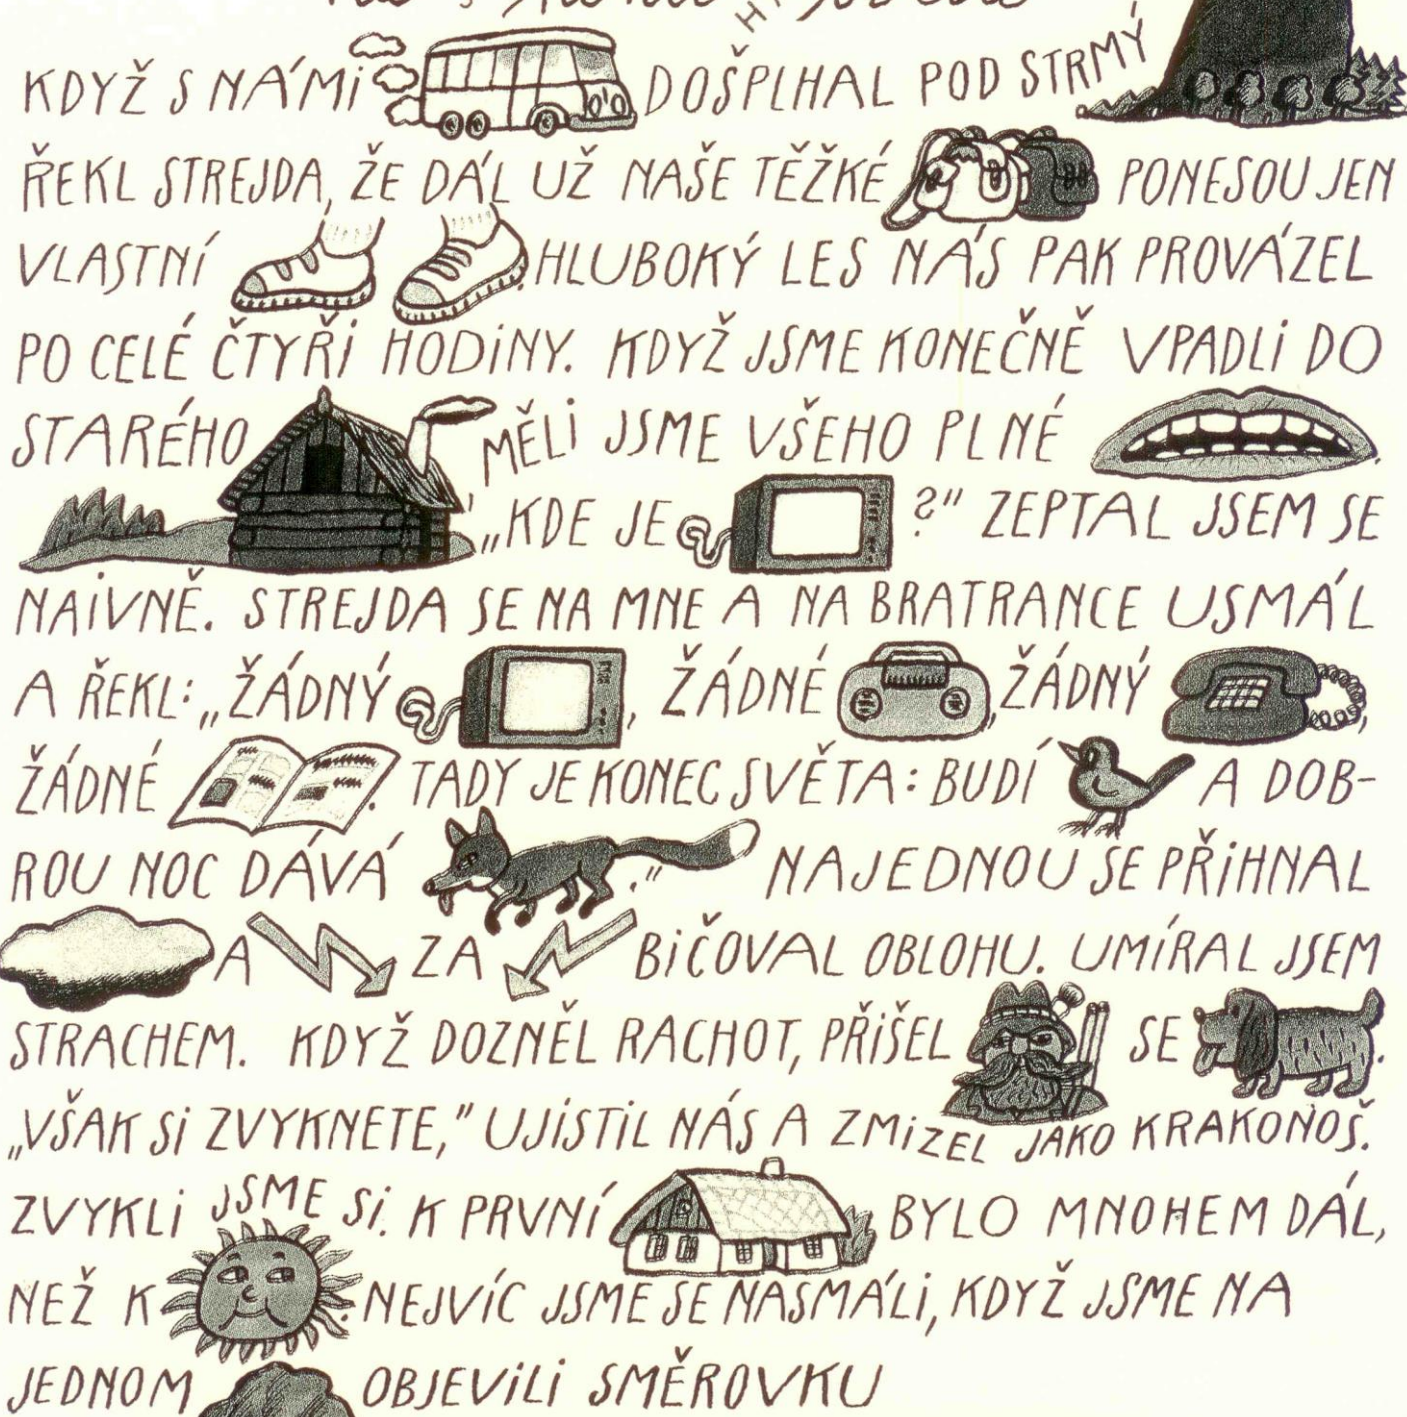 KDYŽ S NÁMI DOŠPLHAL POD STRMÝ
ŘEKL STREJDA, ŽE DÁL UŽ NAŠE TĚŽKÉ PONESOU JEN
VLASTNÍ . HLUBOKÝ LES NÁS PAK PROVÁZEL
PO CELÉ ČTYŘI HODINY. KDYŽ JSME KONEČNĚ VPADLI DO
STARÉHO , MĚLI JSME VŠEHO PLNÉ .
„KDE JE ?" ZEPTAL JSEM SE
NAIVNĚ. STREJDA SE NA MNE A NA BRATRANCE USMÁL
A ŘEKL: „ŽÁDNÝ , ŽÁDNÉ , ŽÁDNÝ ,
ŽÁDNÉ . TADY JE KONEC SVĚTA: BUDÍ A DOB-
ROU NOC DÁVÁ ." NAJEDNOU SE PŘIHNAL
A ZA BIČOVAL OBLOHU. UMÍRAL JSEM
STRACHEM. KDYŽ DOZNĚL RACHOT, PŘIŠEL SE .
„VŠAK SI ZVYKNETE," UJISTIL NÁS A ZMIZEL JAKO KRAKONOŠ.
ZVYKLI JSME SI. K PRVNÍ BYLO MNOHEM DÁL,
NEŽ K . NEJVÍC JSME SE NASMÁLI, KDYŽ JSME NA
JEDNOM OBJEVILI SMĚROVKU